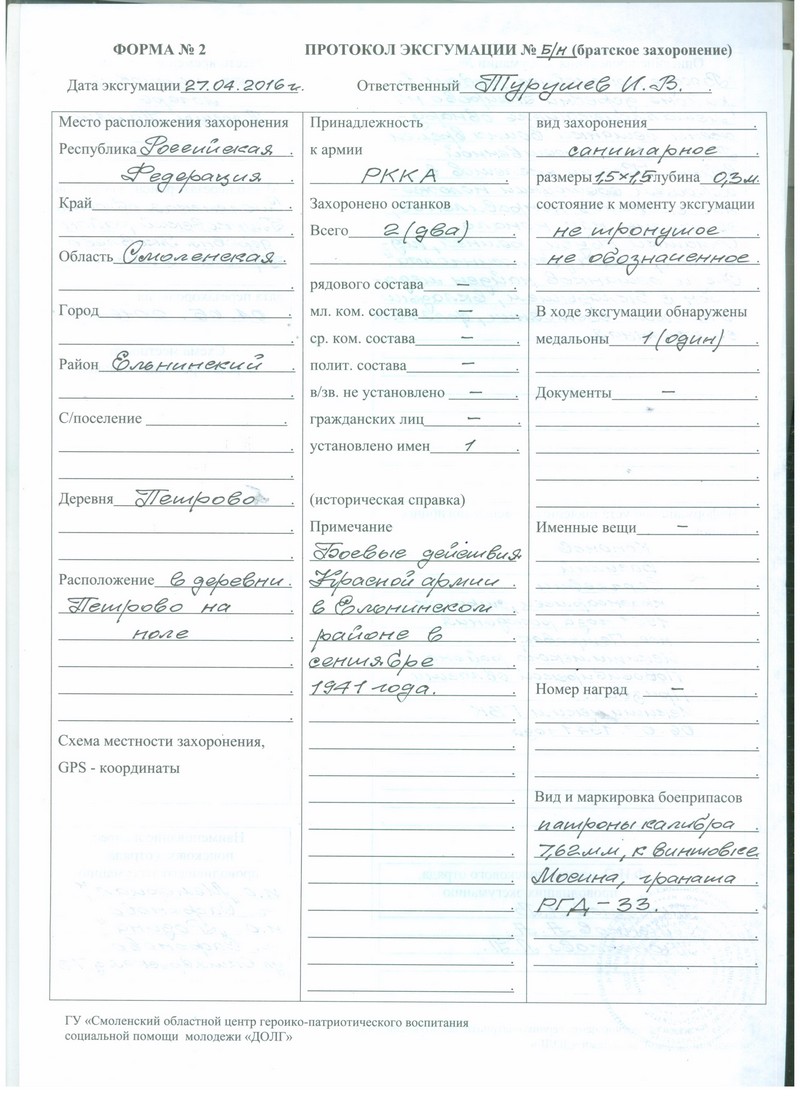 ФОРМА № 2
ПРОТОКОЛ ЭКСГУМАЦИИ № Б/н (братское захоронение)
Дата эксгумации 27.04.2016 г.
Ответственный Турушев И. В.
Место расположения захоронения
Республика Российская
Федерация
Край
Область Смоленская
Город
Район Ельнинский
С/поселение
Деревня Петрово
Расположение в деревни
Петрово на
поле
Схема местности захоронения,
GPS - координаты
Принадлежность
к армии
РККА
Захоронено останков
Всего 2 (два)
рядового состава –
мл. ком. состава –
ср. ком. состава –
полит. состава –
в/зв. не установлено –
гражданских лиц –
установлено имен 1
(историческая справка)
Примечание
Боевые действия
Красной армии
в Ельнинском
районе в
сентябре
1941 года.
вид захоронения
санитарное
размеры 1,5×1,5 глубина 0,3 м.
состояние к моменту эксгумации
не тронутое
не обозначенное
В ходе эксгумации обнаружены
медальоны 1 (один)
Документы –
Именные вещи –
Номер наград –
Вид и маркировка боеприпасов
патроны калибра
7,62 мм, к винтовке
Мосина, граната
РГД – 33.
ГУ «Смоленский областной центр героико-патриотического воспитания
социальной помощи молодежи «ДОЛГ»